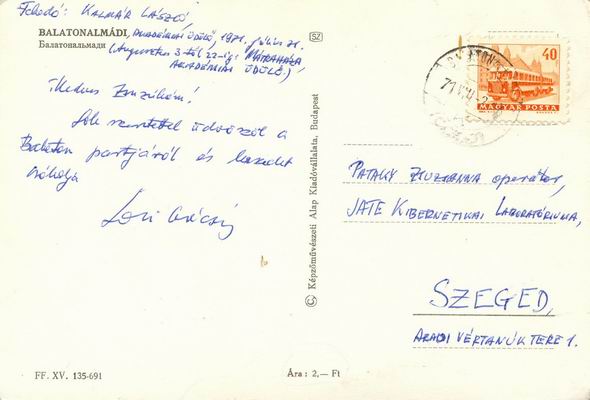 Feladó: KALMÁR LÁSZLÓ,
BALATONALMÁDI, AKADÉMIAI ÜDÜLŐ, 1971. július 21.
Балатональмади (Augusztus 3-tól 22-ig: MÁTRAHÁZA,
AKADÉMIAI ÜDÜLŐ.)
Kedves Zsuzsikám!
Sok szeretettel üdvözöl a
Balaton partjáról és kezedet
csókolja
Laci bácsi
FF. XV. 135-691
Ára: 2,— Ft
© Képzőművészeti Alap Kiadóvállalata, Budapest
SZ
40
MAGYAR POSTA
71 VII
PATAKY ZSUZSANNA operátor,
JATE KIBERNETIKAI LABORATÓRIUMA,
SZEGED,
ARADI VÉRTANÚK TERE 1.